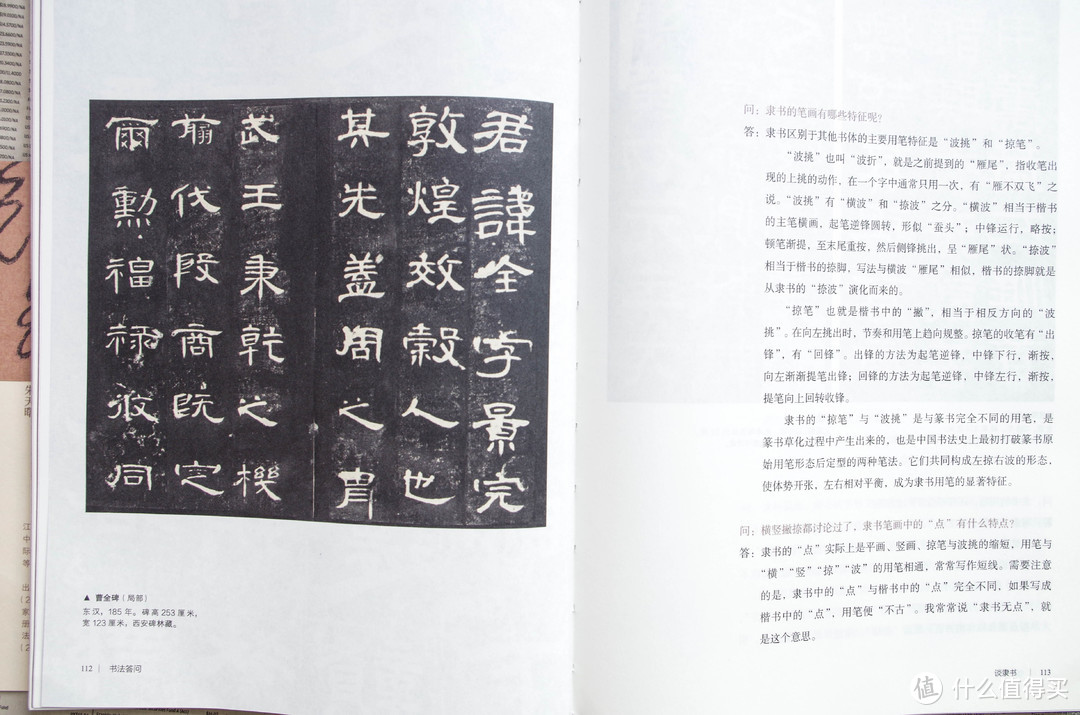 君諱全字景完
敦煌效穀人也
其先蓋周之胄
武王秉乾之機
翦伐殷商既定
爾勳福祿攸同
▲ 曹全碑（局部）
东汉，185年。碑高253厘米，
宽123厘米，西安碑林藏。
112 | 书法答问
问：隶书的笔画有哪些特征呢？
答：隶书区别于其他书体的主要用笔特征是“波挑”和“掠笔”。
“波挑”也叫“波折”，就是之前提到的“雁尾”，指收笔出
现的上挑的动作，在一个字中通常只用一次，有“雁不双飞”之
说。“波挑”有“横波”和“捺波”之分。“横波”相当于楷书
的主笔横画，起笔逆锋圆转，形似“蚕头”；中锋运行，略按；
顿笔渐提，至末尾重按，然后侧锋挑出，呈“雁尾”状。“捺波”
相当于楷书的捺脚，写法与横波“雁尾”相似，楷书的捺脚就是
从隶书的“捺波”演化而来的。
“掠笔”也就是楷书中的“撇”，相当于相反方向的“波
挑”。在向左挑出时，节奏和用笔上趋向规整。掠笔的收笔有“出
锋”，有“回锋”。出锋的方法为起笔逆锋，中锋下行，渐按，
向左渐渐提笔出锋；回锋的方法为起笔逆锋，中锋左行，渐按，
提笔向上回转收锋。
隶书的“掠笔”与“波挑”是与篆书完全不同的用笔，是
篆书草化过程中产生出来的，也是中国书法史上最初打破篆书原
始用笔形态后定型的两种笔法。它们共同构成左掠右波的形态，
使体势开张，左右相对平衡，成为隶书用笔的显著特征。
问：横竖撇捺都讨论过了，隶书笔画中的“点”有什么特点？
答：隶书的“点”实际上是平画、竖画、掠笔与波挑的缩短，用笔与
“横”“竖”“掠”“波”的用笔相通，常常写作短线。需要注意
的是，隶书中的“点”与楷书中的“点”完全不同，如果写成
楷书中的“点”，用笔便“不古”。我常常说“隶书无点”，就
是这个意思。
谈隶书 | 113
值 什么值得买